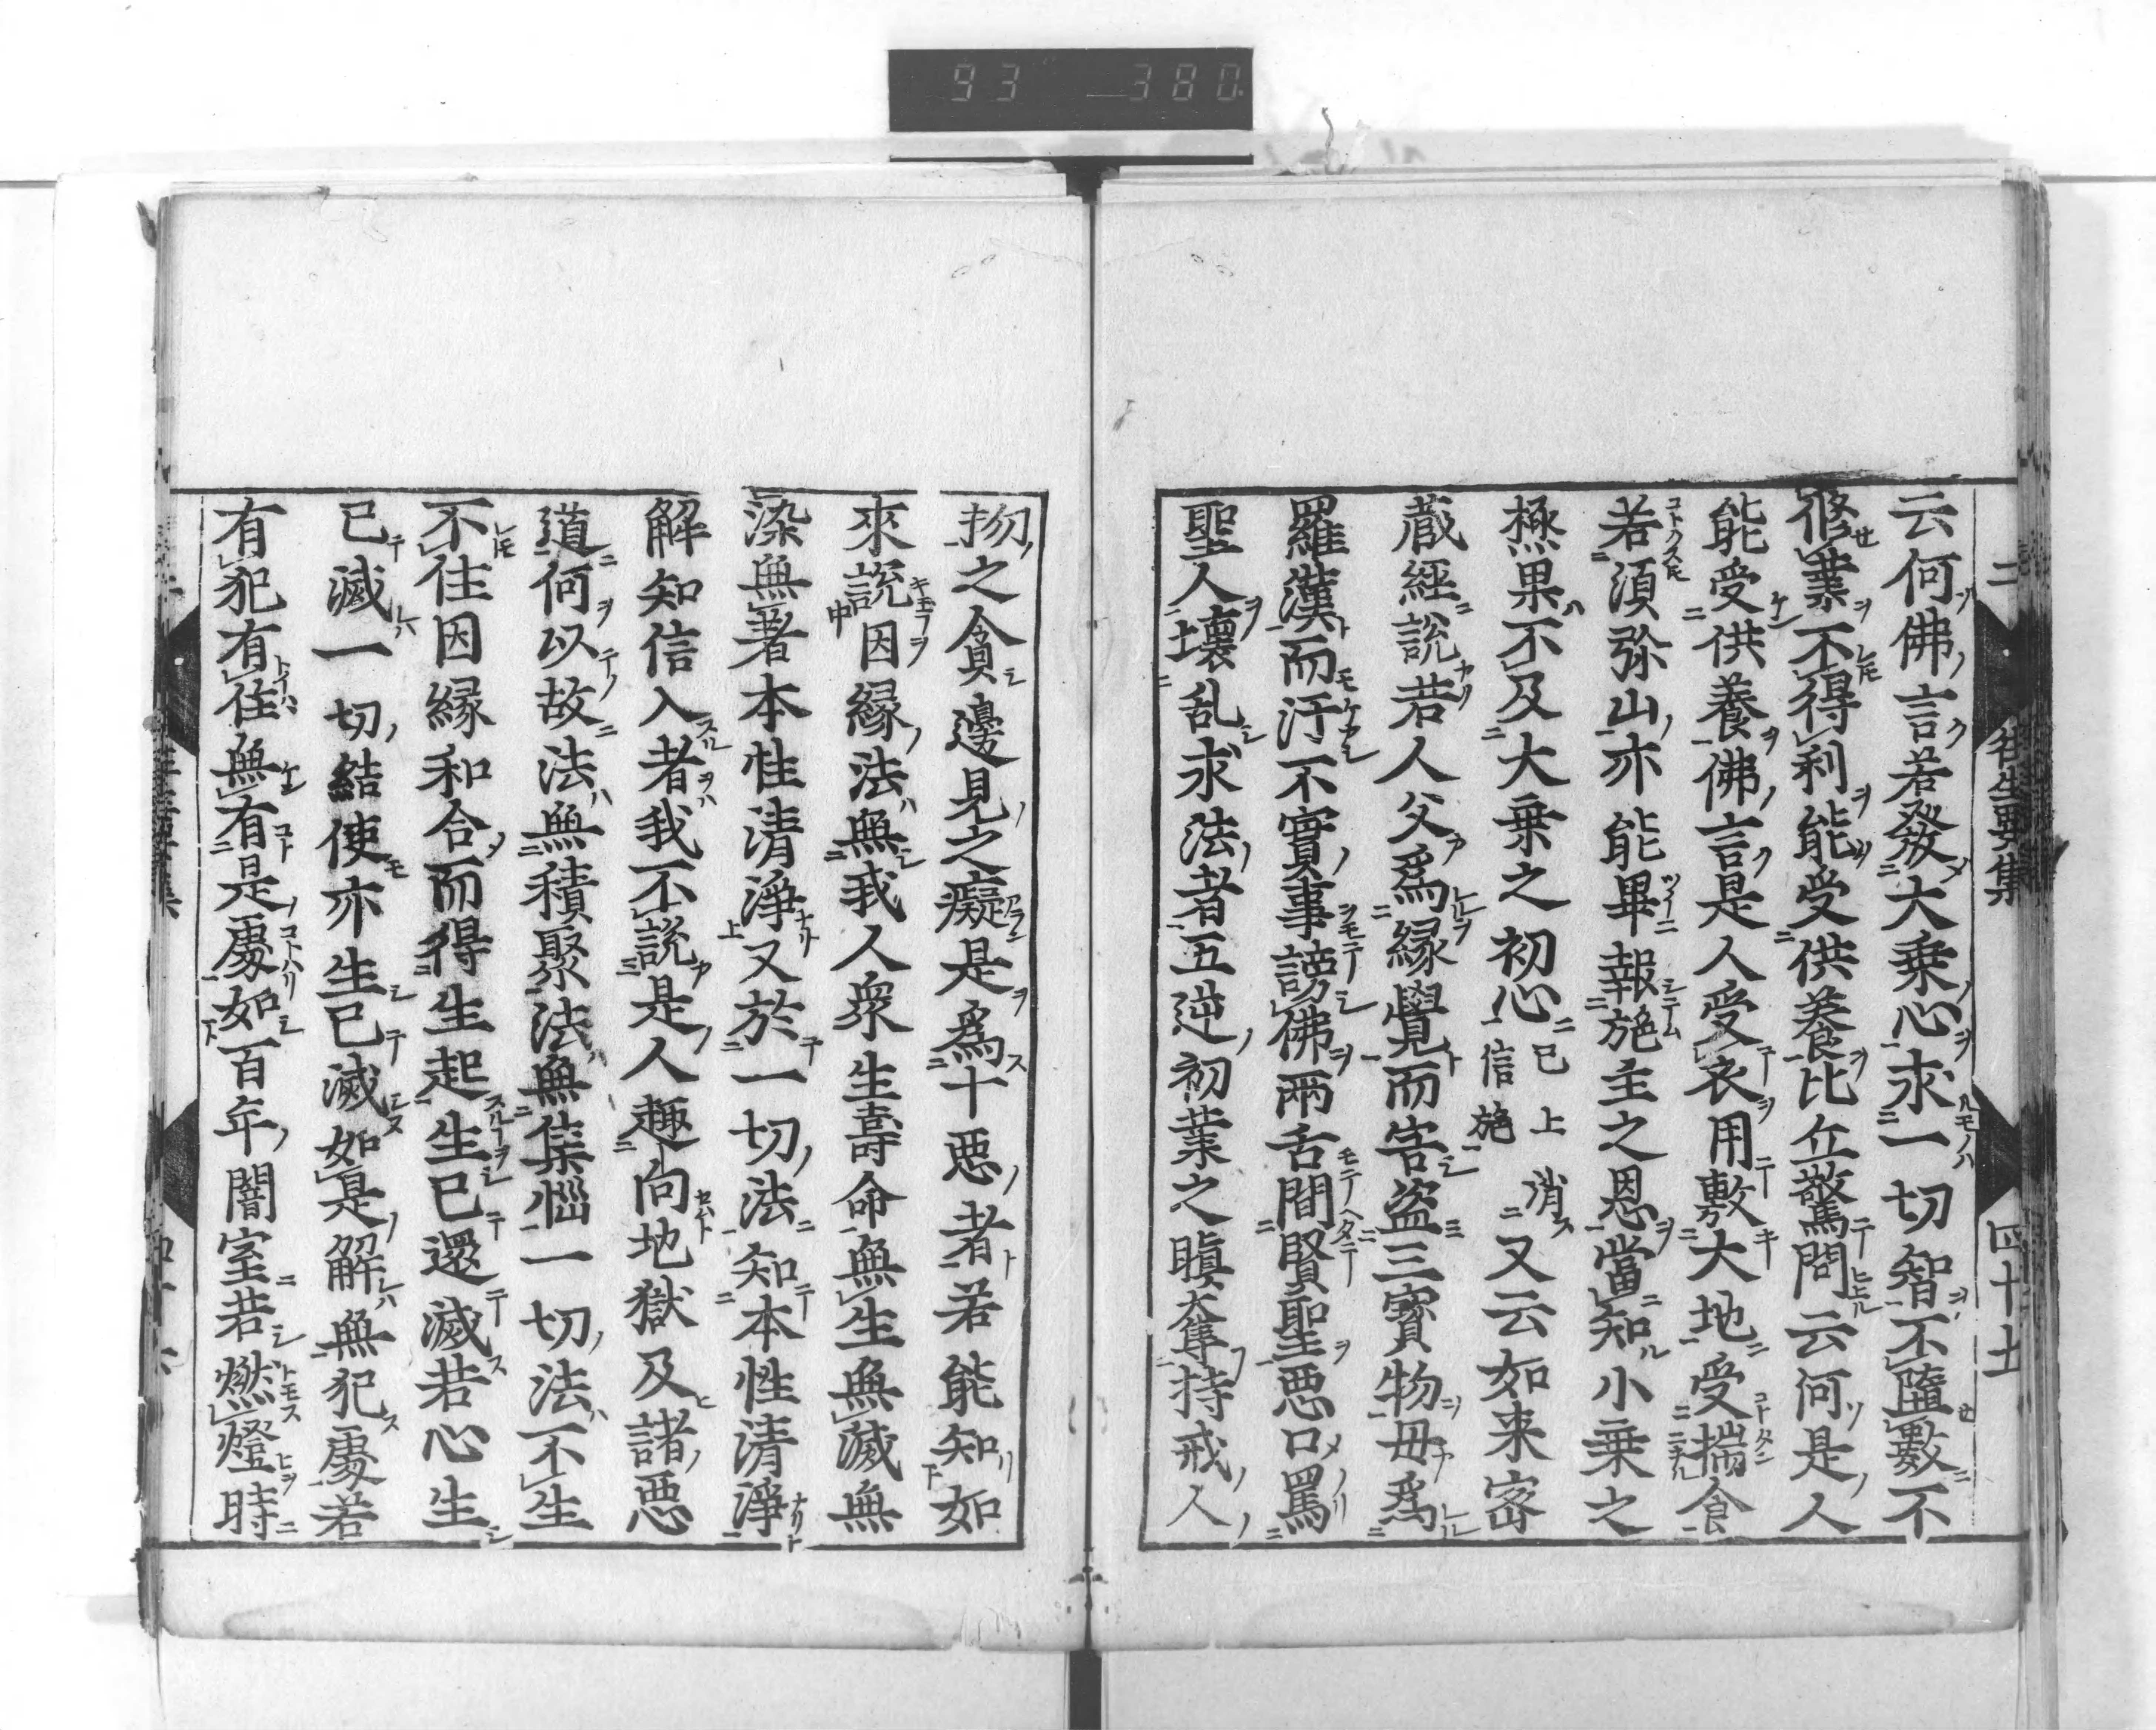 93 380
二 往生要集 四十七
云何佛言若發大乗心求一切智不墮數不
修業不得利能受供養比丘驚問云何是人
能受供養佛言是人受衣用敷大地受揣食
若須弥山亦能畢報施主之恩當知小乗之
極果不及大乗之初心已上消信施又云如来密
蔵經說若人父爲縁覺而害盗三寳物母爲
羅漢而汙不實事謗佛兩舌間賢聖悪口罵
聖人壊乱求法者五逆初業之瞋奪持戒人
物之貪邊見之癡是爲十悪者若能知如
來說因縁法無我人衆生壽命無生無滅無
染無著本性清淨又於一切法知本性清淨
解知信入者我不說是人趣向地獄及諸悪
道何以故法無積聚法無集惱一切法不生
不住因縁和合而得生起生已還滅若心生
已滅一切結使亦生已滅如是解無犯處若
有犯有住無有是處如百年闇室若燃燈時